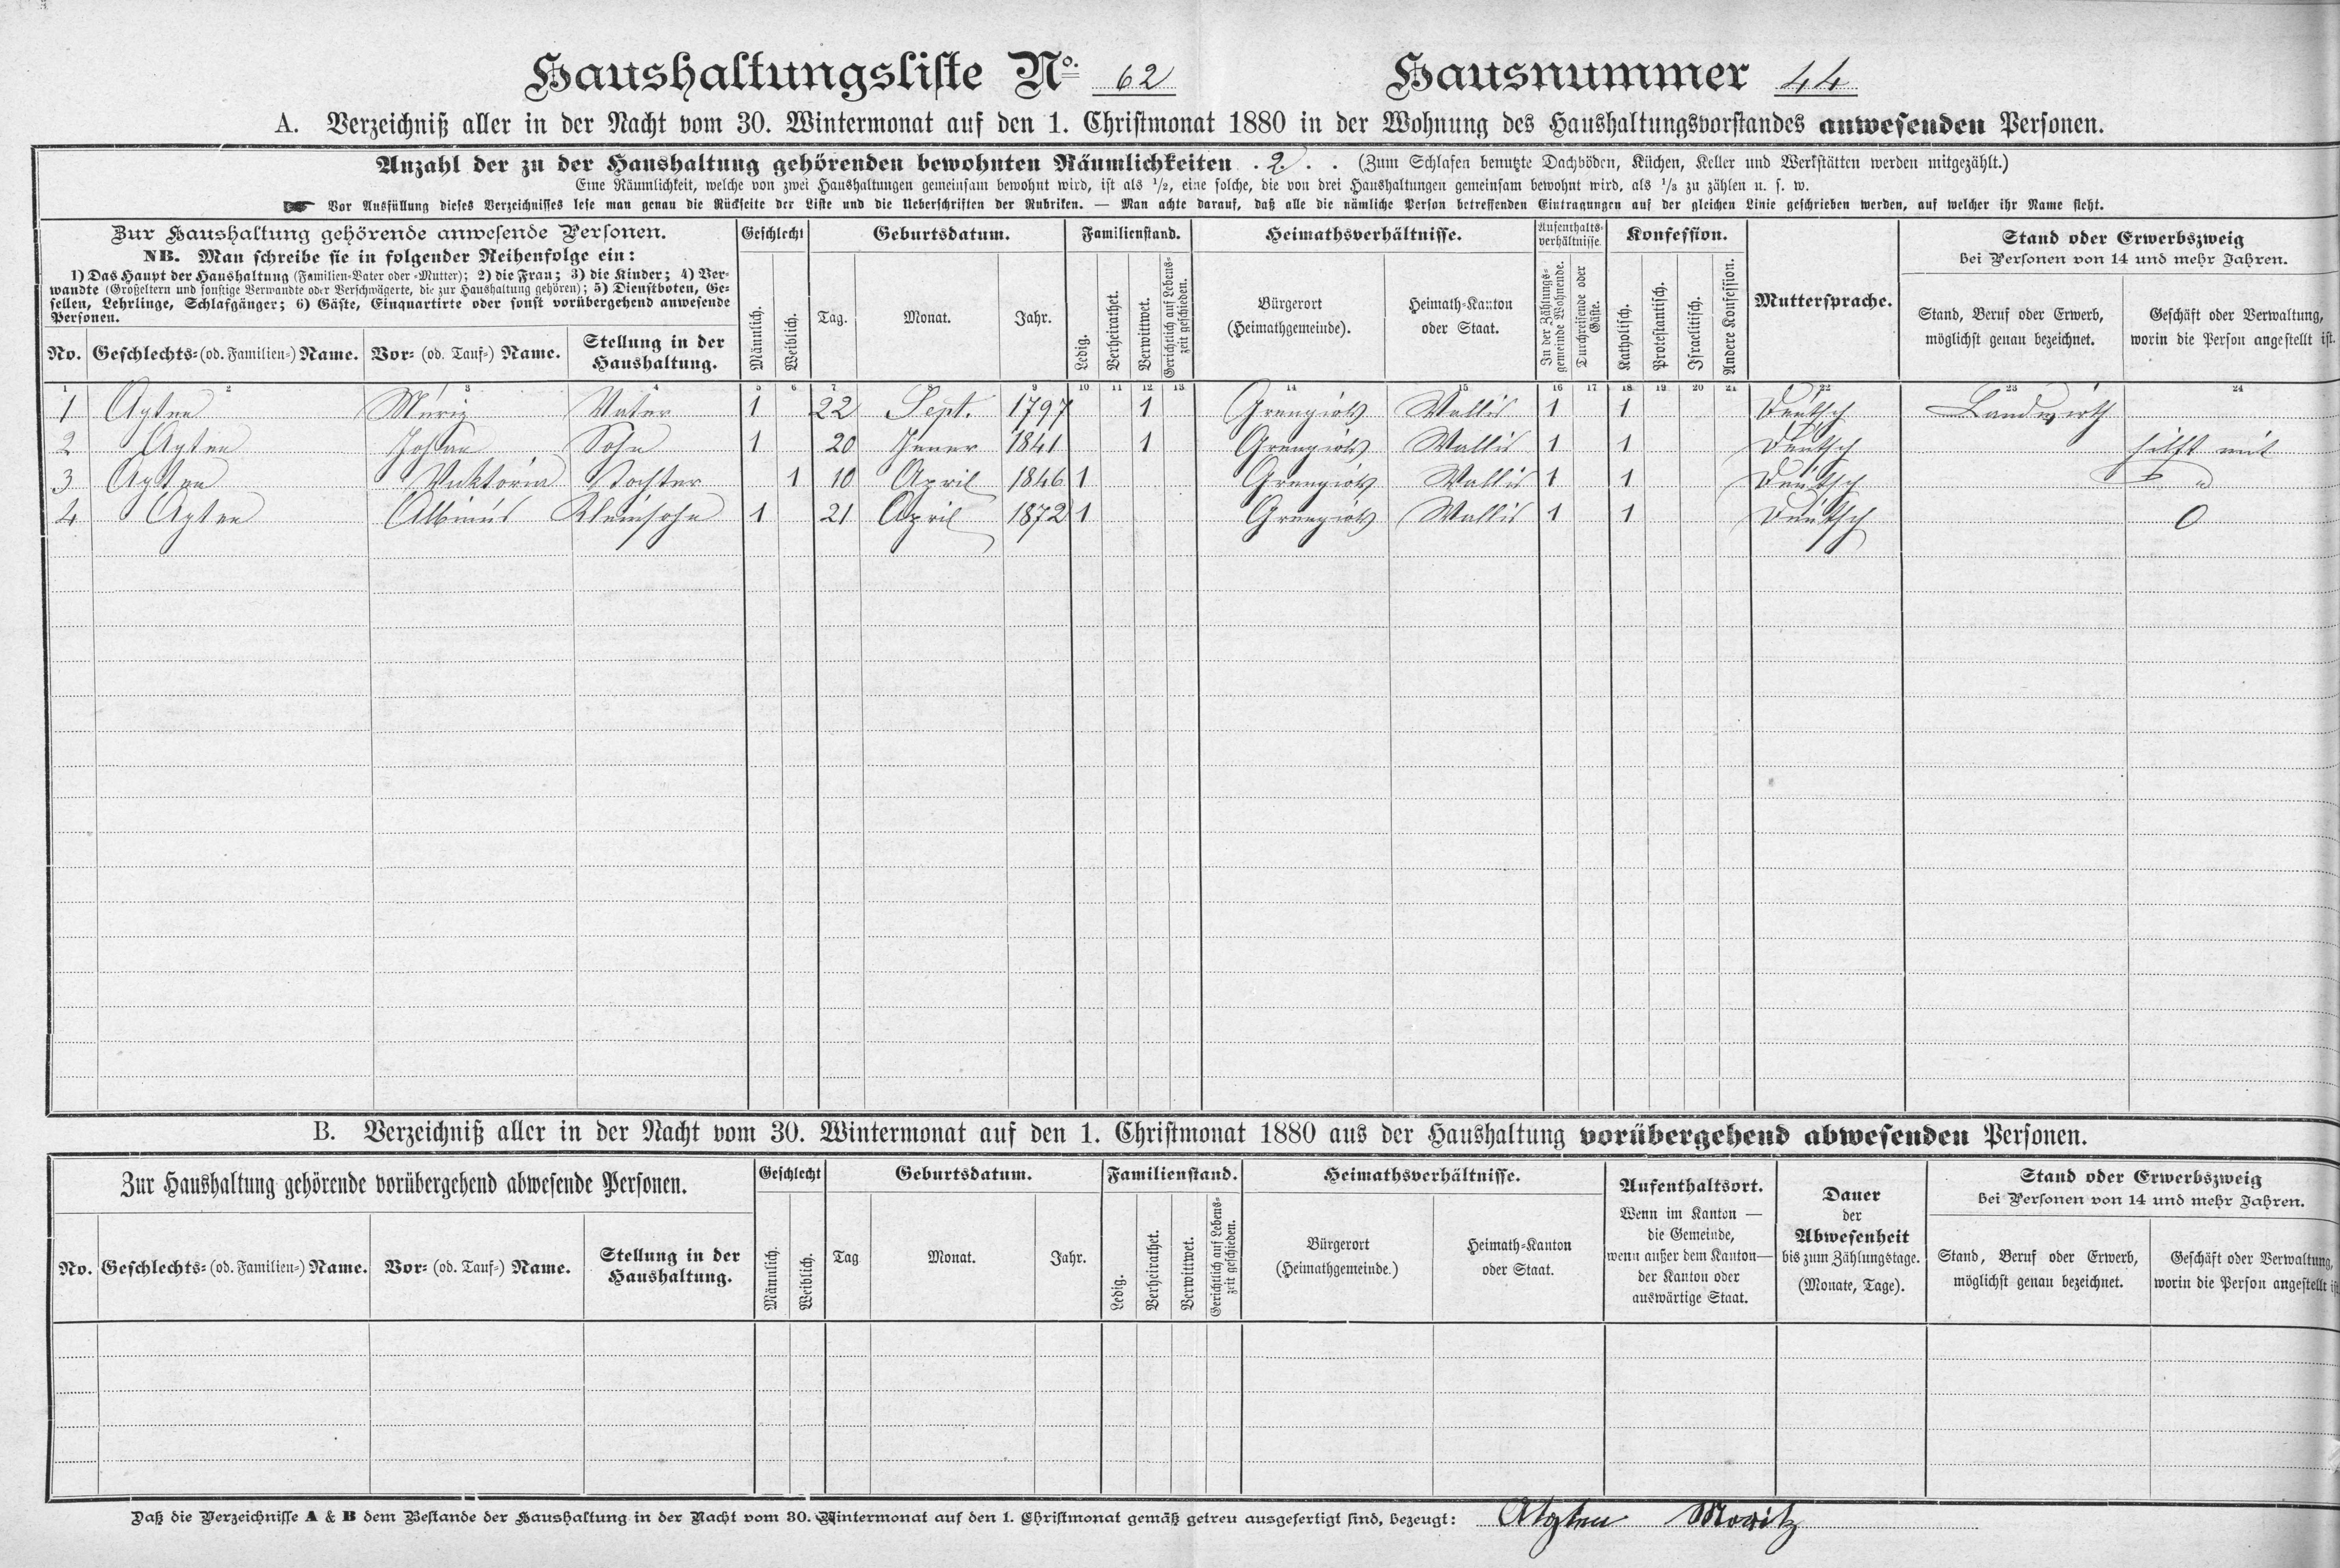 Haushaltungsliste No. 62 Hausnummer 44
A. Verzeichniß aller in der Nacht vom 30. Wintermonat auf den 1. Christmonat 1880 in der Wohnung des Haushaltungsvorstandes anwesenden Personen.
Anzahl der zu der Haushaltung gehörenden bewohnten Räumlichkeiten . 2 . . (Zum Schlafen benutzte Dachböden, Küchen, Keller und Werkstätten werden mitgezählt.)
Eine Räumlichkeit, welche von zwei Haushaltungen gemeinsam bewohnt wird, ist als 1/2, eine solche, die von drei Haushaltungen gemeinsam bewohnt wird, als 1/3 zu zählen u. s. w.
Vor Ausfüllung dieses Verzeichnisses lese man genau die Rückseite der Liste und die Ueberschriften der Rubriken. — Man achte darauf, daß alle die nämliche Person betreffenden Eintragungen auf der gleichen Linie geschrieben werden, auf welcher ihr Name steht.
Zur Haushaltung gehörende anwesende Personen.
NB. Man schreibe sie in folgender Reihenfolge ein:
1) Das Haupt der Haushaltung (Familien-Vater oder -Mutter); 2) die Frau; 3) die Kinder; 4) Ver-
wandte (Großeltern und sonstige Verwandte oder Verschwägerte, die zur Haushaltung gehören); 5) Dienstboten, Ge-
sellen, Lehrlinge, Schlafgänger; 6) Gäste, Einquartirte oder sonst vorübergehend anwesende
Personen.
No. Geschlechts- (od. Familien-) Name. Vor- (od. Tauf-) Name. Stellung in der
Haushaltung.
Geschlecht
Männlich. Weiblich.
Geburtsdatum.
Tag. Monat. Jahr.
Familienstand.
Ledig. Verheirathet. Verwittwet. Gerichtlich auf Lebens-
zeit geschieden.
Heimathsverhältnisse.
Bürgerort
(Heimathgemeinde).
Heimath-Kanton
oder Staat.
Aufenthalts-
verhältnisse.
In der Zählungs-
gemeinde Wohnende.
Durchreisende oder
Gäste.
Konfession.
Katholisch. Protestantisch. Israelitisch. Andere Konfession.
Muttersprache.
Stand oder Erwerbszweig
bei Personen von 14 und mehr Jahren.
Stand, Beruf oder Erwerb,
möglichst genau bezeichnet.
Geschäft oder Verwaltung,
worin die Person angestellt ist.
1 2 3 4 5 6 7 8 9 10 11 12 13 14 15 16 17 18 19 20 21 22 23 24
1 Agten Muriz Vater 1 22 Sept. 1797 1 Grengiols Wallis 1 1 Deutsch Landwirth
2 Agten Johan Sohn 1 20 Jener 1841 1 Grengiols Wallis 1 1 Deutsch hilft mit
3 Agten Viktoria Tochter 1 10 April 1846 1 Grengiols Wallis 1 1 Deutsch
4 Agten Albinus Kleinsohn 1 21 April 1872 1 Grengiols Wallis 1 1 Deutsch 0
B. Verzeichniß aller in der Nacht vom 30. Wintermonat auf den 1. Christmonat 1880 aus der Haushaltung vorübergehend abwesenden Personen.
Zur Haushaltung gehörende vorübergehend abwesende Personen.
No. Geschlechts- (od. Familien-) Name. Vor- (od. Tauf-) Name. Stellung in der
Haushaltung.
Geschlecht
Männlich. Weiblich.
Geburtsdatum.
Tag Monat. Jahr.
Familienstand.
Ledig. Verheirathet. Verwittwet. Gerichtlich auf Lebens-
zeit geschieden.
Heimathsverhältnisse.
Bürgerort
(Heimathgemeinde.)
Heimath-Kanton
oder Staat.
Aufenthaltsort.
Wenn im Kanton —
die Gemeinde,
wenn außer dem Kanton—
der Kanton oder
auswärtige Staat.
Dauer
der
Abwesenheit
bis zum Zählungstage.
(Monate, Tage).
Stand oder Erwerbszweig
bei Personen von 14 und mehr Jahren.
Stand, Beruf oder Erwerb,
möglichst genau bezeichnet.
Geschäft oder Verwaltung,
worin die Person angestellt ist
Daß die Verzeichnisse A & B dem Bestande der Haushaltung in der Nacht vom 30. Wintermonat auf den 1. Christmonat gemäß getreu ausgefertigt sind, bezeugt: Agten Moritz